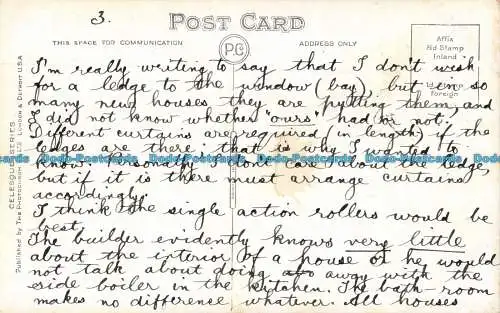 3.
POST CARD
THIS SPACE FOR COMMUNICATION
P.C
ADDRESS ONLY
Affix
Stamp
Inland
Foreign
I'm really writing to say that I don't wish
for a ledge to the window (bay), but on so
many new houses they are putting them, and
I did not know whether "ours" had or not.
Different curtains are required in length, if the
ledges are there, that is why I wanted to
know. Personally I don't care about a ledge,
but if it is there must arrange curtains
accordingly.
I think the single action rollers would be
best.
The builder evidently knows very little
about the interior of a house or he would
not talk about doing away with the
side boiler in the kitchen. The bath-room
makes no difference whatever. All houses
CELESQUE SERIES
Published by The Photochrom Co. Ltd. London & Detroit U.S.A
Dodo-Postcards Dodo-Postcards Dodo-Postcards Dodo-Postcards